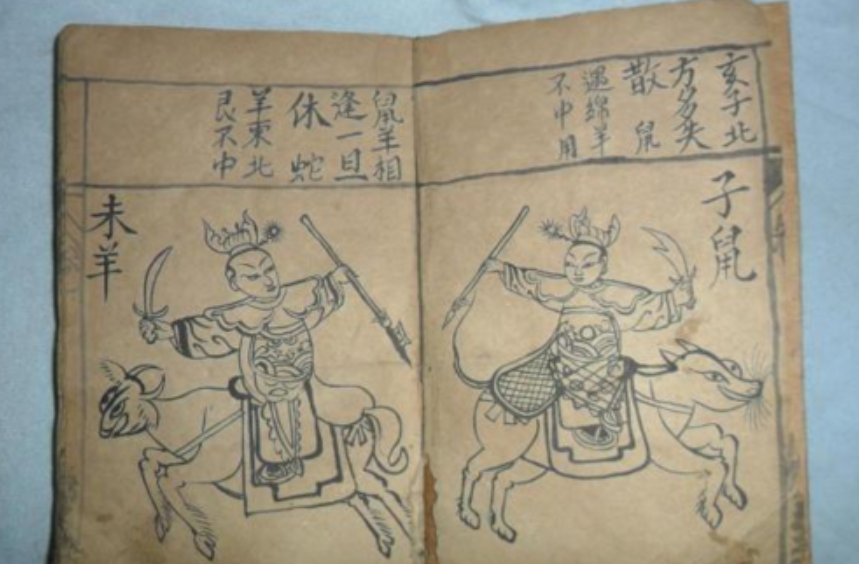 亥子北
方多失
散鼠
遇綿羊
不中用
子鼠
鼠羊相
逢一旦
休蛇
羊東北
艮不中
未羊